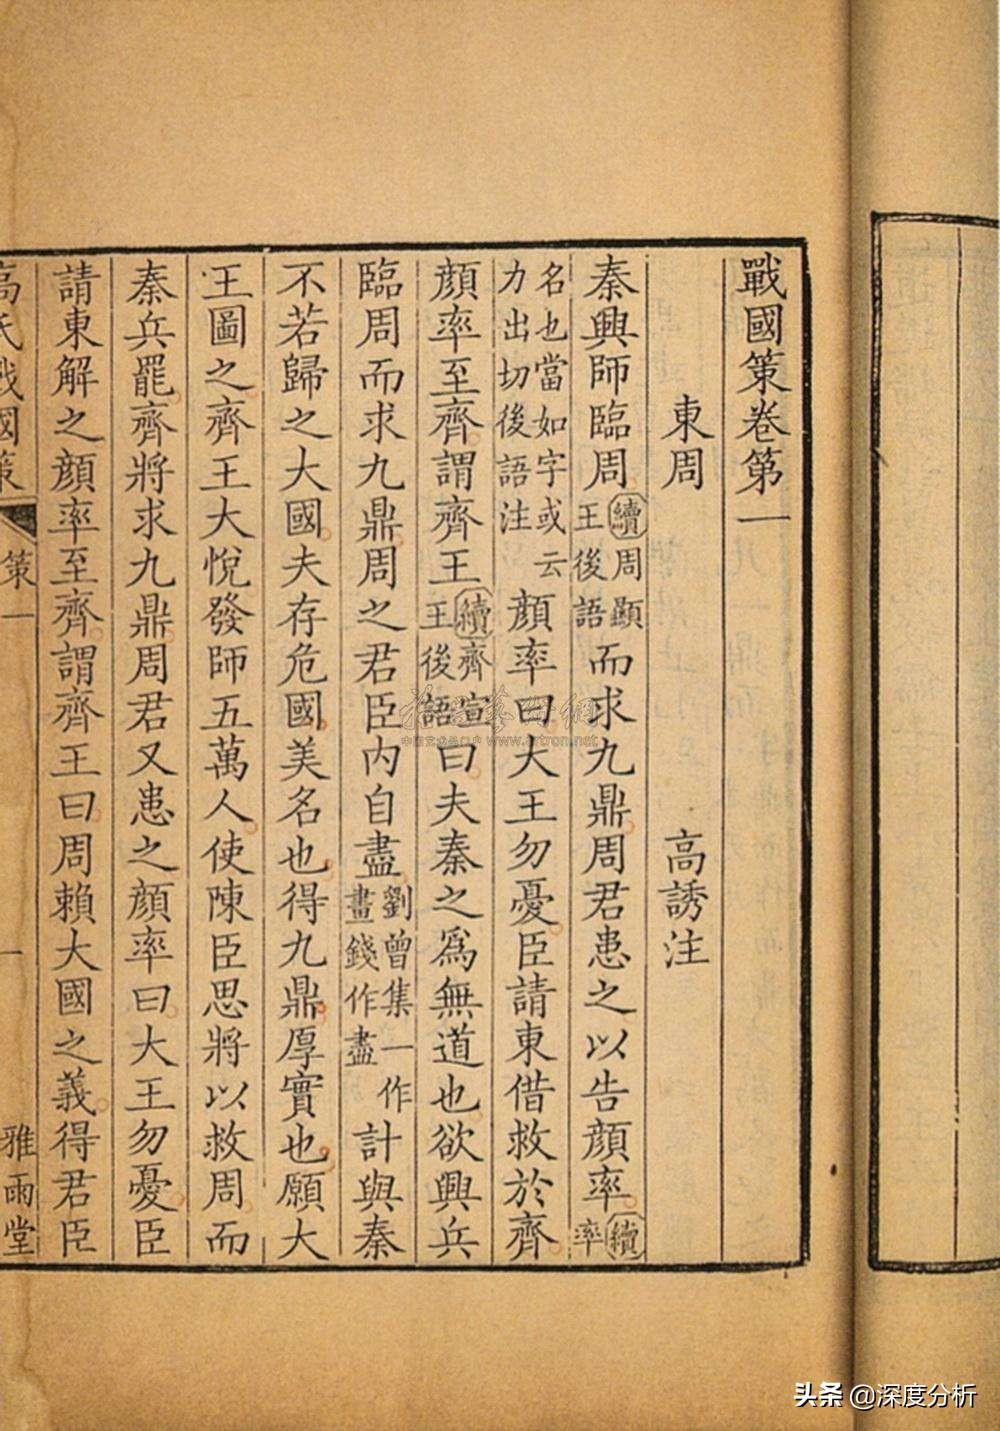 戰國策卷第一
東周 高誘注
秦興師臨周續周顯王後語而求九鼎周君患之以告顔率續率
名也當如字或云力出切後語注顔率曰大王勿憂臣請東借救於齊
顔率至齊謂齊王續齊宣王後語曰夫秦之爲無道也欲興兵
臨周而求九鼎周之君臣内自盡劉曾集一作畫錢作盡計與秦
不若歸之大國夫存危國美名也得九鼎厚實也願大
王圖之齊王大悅發師五萬人使陳臣思將以救周而
秦兵罷齊將求九鼎周君又患之顔率曰大王勿憂臣
請東解之顔率至齊謂齊王曰周賴大國之義得君臣
高氏戰國策 策一 一 雅雨堂
www.artron.net
头条 @深度分析